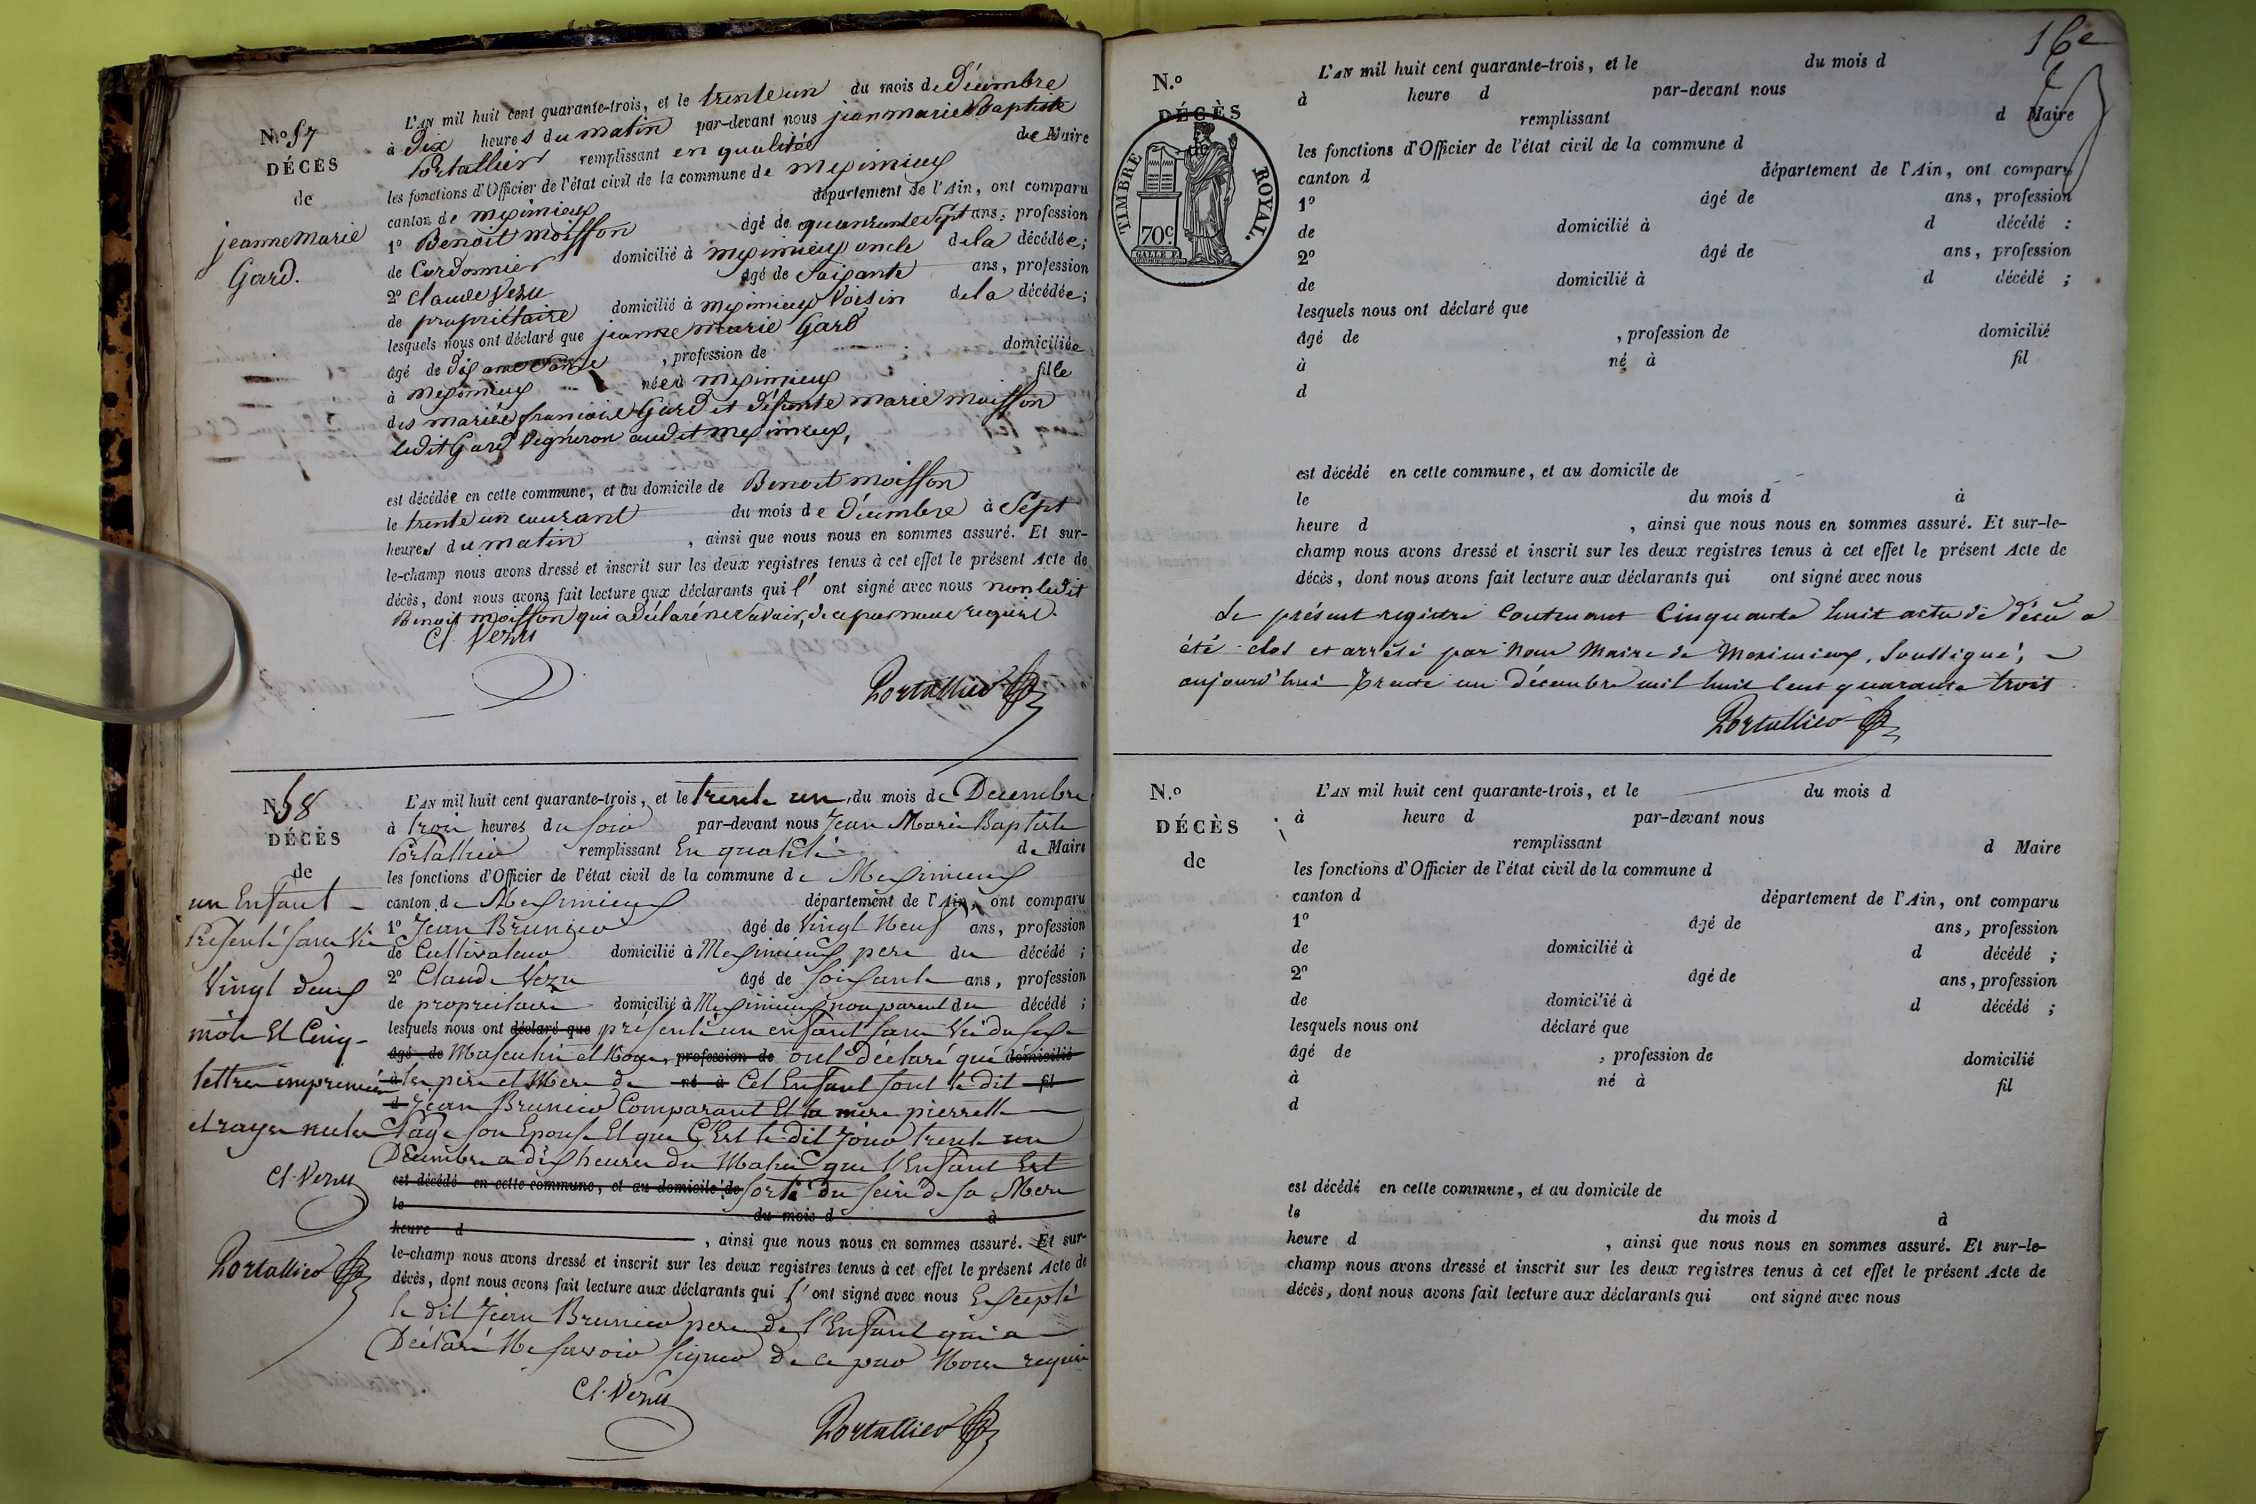 N.º 57
DÉCÈS
de
jeanne marie
Gard.
L'AN mil huit cent quarante-trois, et le trente un du mois de Décembre
à Dix heures du matin par-devant nous jean marie Baptiste
Portallier remplissant en qualité de Maire
les fonctions d'Officier de l'état civil de la commune de meximieux
canton de meximieux département de l'Ain, ont comparu
1º Benoit moisson âgé de quarante Sept ans, profession
de Cordonnier domicilié à meximieux oncle de la décédée;
2º Claude Vezu âgé de Soixante ans, profession
de propriétaire domicilié à meximieux Voisin de la décédée;
lesquels nous ont déclaré que jeanne marie Gard
âgé de dix , profession de domiciliée
à meximieux née à meximieux fille
des mariés françois Gard et défunte marie moisson
ledit Gard Vigneron audit meximieux,
est décédée en cette commune, et au domicile de Benoit moisson
le trente un courant du mois de Décembre à Sept
heures du matin , ainsi que nous nous en sommes assuré. Et sur-
le-champ nous avons dressé et inscrit sur les deux registres tenus à cet effet le présent Acte de
décès, dont nous avons fait lecture aux déclarants qui l' ont signé avec nous non ledit
Benoit moisson qui a Déclaré ne Savoir, de ce par nous requis.
Cl. Vezu
Portallier
N.º 58
DÉCÈS
de
un Enfant
Présenté sans Vie
Vingt deux
mots Et Cinq
lettres imprimées
et rayés nuls
Cl. Vezu
Portallier
L'AN mil huit cent quarante-trois, et le trente un du mois de Decembre
à trois heures du soir par-devant nous Jean Marie Baptiste
Portallier remplissant En qualité de Maire
les fonctions d'Officier de l'état civil de la commune de Meximieux
canton de Meximieux département de l'Ain, ont comparu
1º Jean Brunier âgé de Vingt Neuf ans, profession
de Cultivateur domicilié à Meximieux pere du décédé ;
2º Claude Vezu âgé de soixante ans, profession
de proprietaire domicilié à Meximieux non parent du décédé ;
lesquels nous ont déclaré que présenté un enfant sans Vie du sexe
âgé de Masculin et Nous, profession de ont déclaré que domicilié
à les père et Mere de né à Cet Enfant sont le dit fil
d Jean Brunier Comparant Et la mere pierrette
son Epouse Et que C'Est le dit jour trente un
Décembre a dix heures du Matin que l'Enfant Est
est décédé en cette commune, et au domicile de sorti du sein de sa Mere
le du mois d à
heure d , ainsi que nous nous en sommes assuré. Et sur-
le-champ nous avons dressé et inscrit sur les deux registres tenus à cet effet le présent Acte de
décès, dont nous avons fait lecture aux déclarants qui l' ont signé avec nous Excepté
le dit Jean Brunier pere de l'Enfant qui a
Déclaré Ne savoir signer de ce par Nous requis
Cl. Vezu
Portallier
16e
N.º
DÉCÈS
de
TIMBRE ROYAL.
70c
L'AN mil huit cent quarante-trois, et le du mois d
à heure d par-devant nous
remplissant d Maire
les fonctions d'Officier de l'état civil de la commune d
canton d département de l'Ain, ont comparu
1º âgé de ans, profession
de domicilié à d décédé :
2º âgé de ans, profession
de domicilié à d décédé ;
lesquels nous ont déclaré que
âgé de , profession de domicilié
à né à fil
d
est décédé en cette commune, et au domicile de
le du mois d à
heure d , ainsi que nous nous en sommes assuré. Et sur-le-
champ nous avons dressé et inscrit sur les deux registres tenus à cet effet le présent Acte de
décès, dont nous avons fait lecture aux déclarants qui ont signé avec nous
Le présent registre Contenant Cinquante huit actes de décès a
été clos et arrêté par Nous Maire de Meximieux, Soussigné,
aujourd'hui Trente un Décembre mil huit Cent quarante trois
Portallier
N.º
DÉCÈS
de
L'AN mil huit cent quarante-trois, et le du mois d
à heure d par-devant nous
remplissant d Maire
les fonctions d'Officier de l'état civil de la commune d
canton d département de l'Ain, ont comparu
1º âgé de ans, profession
de domicilié à d décédé ;
2º âgé de ans, profession
de domicilié à d décédé ;
lesquels nous ont déclaré que
âgé de , profession de domicilié
à né à fil
d
est décédé en cette commune, et au domicile de
le du mois d à
heure d , ainsi que nous nous en sommes assuré. Et sur-le-
champ nous avons dressé et inscrit sur les deux registres tenus à cet effet le présent Acte de
décès, dont nous avons fait lecture aux déclarants qui ont signé avec nous